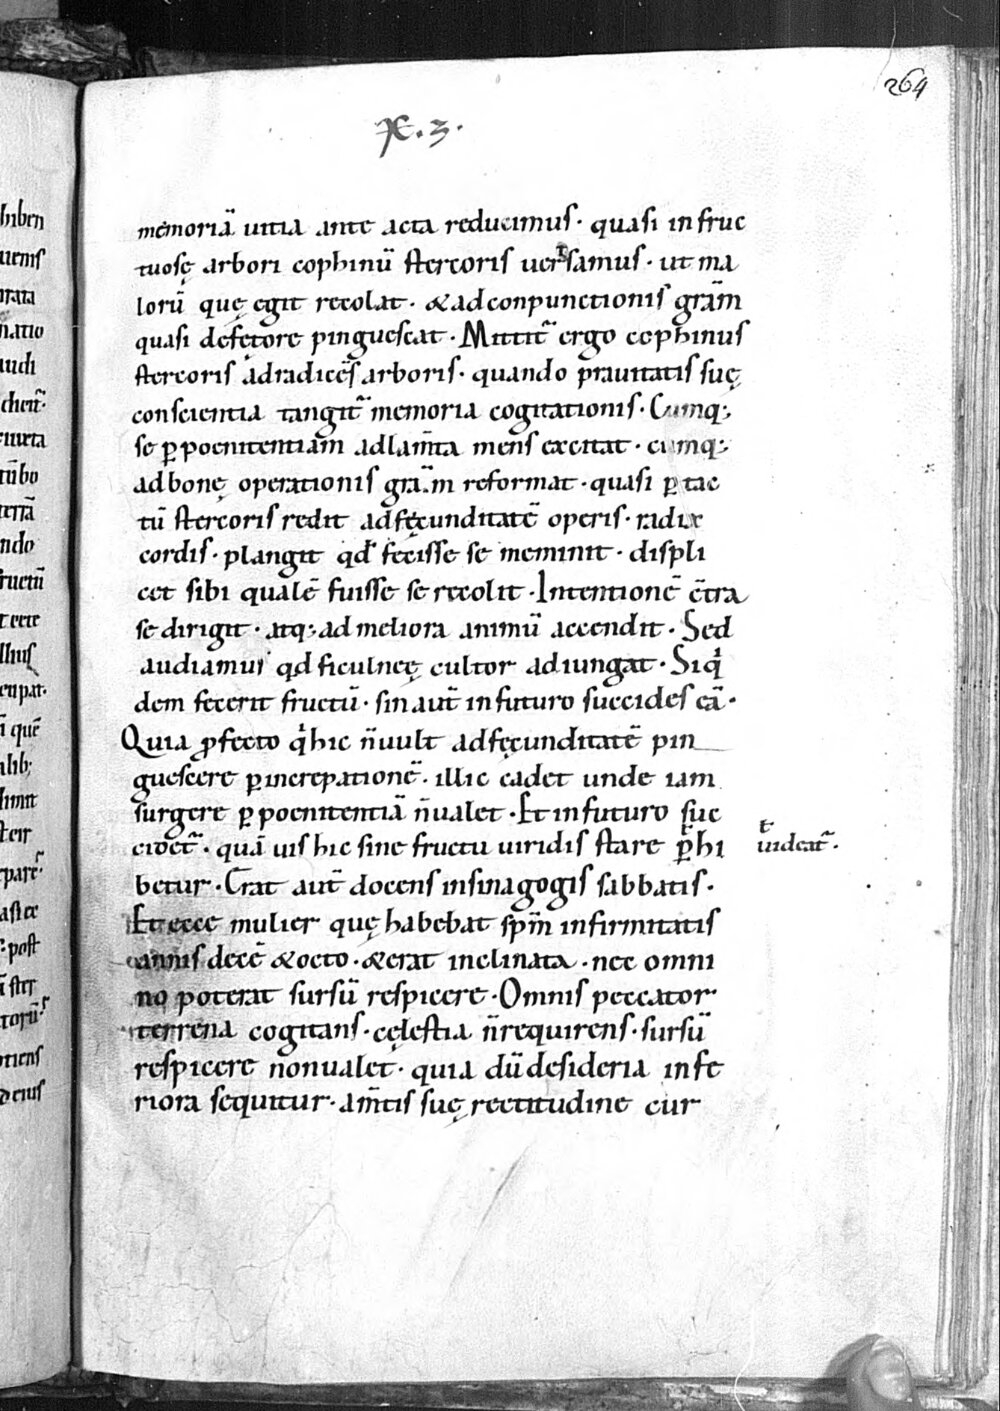 264
X. 3.
memoriā uitia ante acta reducimus· quasi infruc
tuosę arbori cophinū stercoris uersamus· ut ma
lorū quę egit recolat· &adconpunctionis grā̄m
quasi defętore pinguescat· Mittit̄ ergo cophinus
stercoris adradices arboris· quando prauitatis suę
conscientia tangit̄ memoria cogitationis· Cumq;
se ꝑpoenitentiam adlam̄ta mens excitat· cumq;
adbonę operationis grā̄m reformat· quasi ꝑtac
tū stercoris redit adfęcunditatē operis· radix
cordis· plangit qđ fecisse se meminit· displi
cet sibi qualē fuisse se recolit· Intentionē c̄tra
se dirigit· atq; ad meliora animū accendit· Sed
audiamus qđ ficulneę cultor adiungat· Siqͥ
dem fecerit fructū· sin aut̄ infuturo succides eā·
Quia ꝓfecto qͥhic n̄uult adfęcunditatē pin
guescere ꝑincrepationē· illic cadet unde iam
surgere ꝑpoenitentiā n̄ualet· Et infuturo suc
cidet̄· quā uis hic sine fructu uiridis stare ꝑhi
uideat̄·
betur· Erat aut̄ docens insinagogis sabbatis·
Et ecce mulier quę habebat sp̄m infirmitatis
annis decē &octo· &erat inclinata· nec omni
no poterat sursū respicere· Omnis peccator
terrena cogitans· cęlestia n̄requirens· sursū
respicere nonualet· quia dū desideria infe
riora sequitur· am̄tis suę rectitudine cur
hiben
uenis
natio
audi
cheit̄·
iuxta
tūbo
terrā
ndo
fructū
llius
quē
alib;
limit
pare·
post
torū
eius